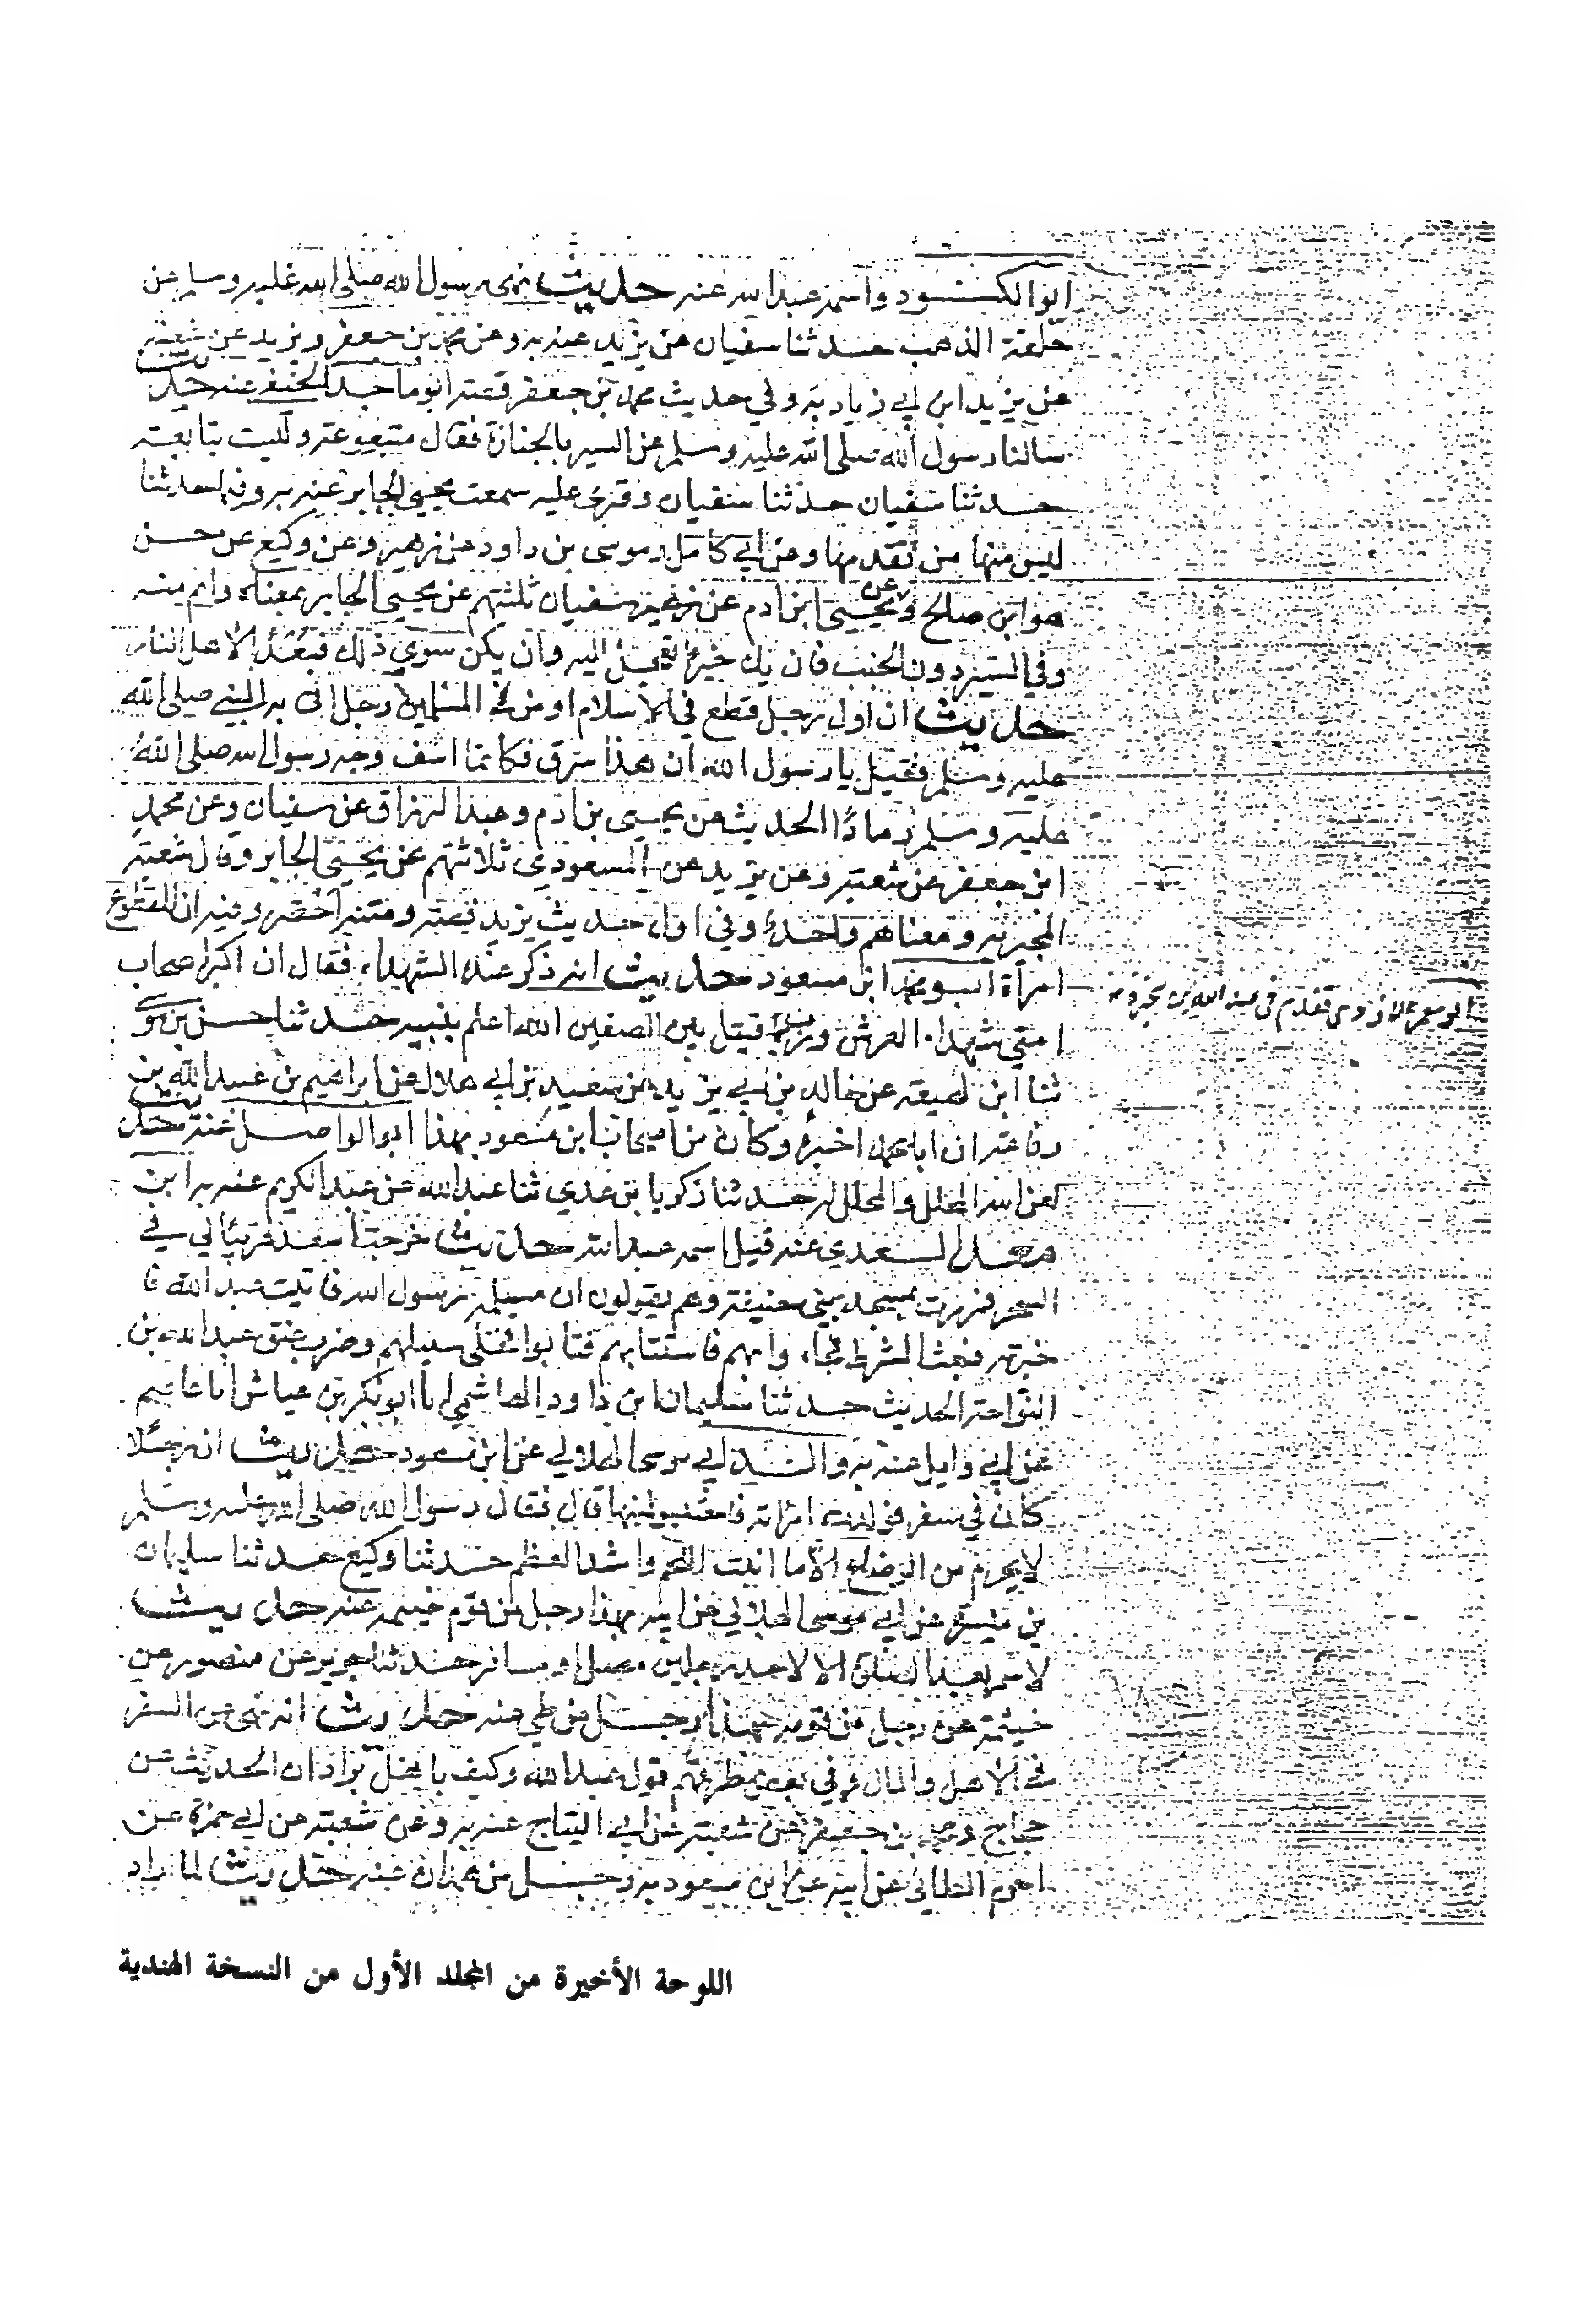 ابو الكنود واسمه عبد الله عنه حديث نهى رسول الله صلى الله عليه وسلم عن
حلقة الذهب حدثنا سفيان عن يزيد عنه به وعن محمد بن جعفر ويزيد عن شعبة
عن يزيد ابن ابي زياد به وفي حديث محمد بن جعفر قصة ابو ماجد الحنفي عنه حديث
سالنا رسول الله صلى الله عليه وسلم عن السير بالجنازة فقال متبوعة وليست بتابعة
حدثنا سفيان حدثنا سفيان وقرئ عليه سمعت يحيى الجابر عنه به
ليس منها من تقدمها وعن ابي كامل وموسى بن داود عن زهير وعن وكيع عن حسن
هو ابن صالح وعن يحيى ابن ادم عن زهير سفيان ثلثتهم عن يحيى الجابر بمعناه واتم منه
وفي السير دون الخبب فان يك خيرا تعجل اليه وان يكن سوى ذلك فبعدا لاهل النار
حديث ان اول رجل قطع في الاسلام او من المسلمين رجل اتى به النبي صلى الله
عليه وسلم فقيل يا رسول الله ان هذا سرق فكانما اسف وجه رسول الله صلى الله
عليه وسلم رمادا الحديث عن يحيى بن ادم وعبد الرزاق عن سفيان وعن محمد
ابن جعفر عن شعبة وعن يزيد عن المسعودي ثلاثتهم عن يحيى الجابر وقال شعبة
المجبر به ومعناهم واحد وفي اول حديث يزيد قصة ومتنه اخصر وفيه ان المقطوع
امراة ابو محمد ابن مسعود حديث انه ذكر عنده الشهداء فقال ان اكثر اصحاب
ابو معمر الازدي تقدم في عبد الله بن سخبرة
امتي شهداء الفرش ورب قتيل بين الصفين الله اعلم بنيته حدثنا حسن بن موسى
ثنا ابن لهيعة عن خالد بن ابي يزيد عن سعيد بن ابي هلال عن ابراهيم بن عبيد الله بن
رفاعة ان ابا محمد اخبره وكان من اصحاب ابن مسعود بهذا ابو الواصل عنه حديث
لعن الله المحلل والمحلل له حدثنا زكريا بن عدي ثنا عبيد الله عن عبد الكريم عنه به ابن
معيز السعدي عنه قيل اسمه عبد الله حديث خرجت اسفد فرسا لي في
السحر فمررت بمسجد بني حنيفة وهم يقولون ان مسيلمة رسول الله فاتيت عبد الله فا
خبرته فبعث الشرط فجاءوا بهم فاستتابهم فتابوا فخلى سبيلهم وضرب عنق عبد الله بن
النواحة الحديث حدثنا سليمان ابن داود الهاشمي انا ابو بكر بن عياش انا عاصم
عن ابي وايل عنه به والد ابي موسى الهلالي عن ابن مسعود حديث ان رجلا
كان في سفر فولدت امراته قال فقال رسول الله صلى الله عليه وسلم
لا يحرم من الرضاع الا ما انبت اللحم واشد العظم حدثنا وكيع حدثنا سليمان
بن المغيرة عن ابي موسى الهلالي عن ابيه بهذا رجل من قوم خيثمة عنه حديث
لا سمر بعد الصلاة الا لاحد رجلين مصل او مسافر حدثنا جرير عن منصور عن
خيثمة عن رجل من قومه بهذا رجل من طي عنه حديث انه نهى عن التبقر
في الاهل والمال وفي بعض طرقهم قول عبد الله وكيف باهل براذان الحديث عن
حجاج ومحمد بن جعفر عن شعبة عن ابي التياح عنه به وعن شعبة عن ابي حمزة عن
اخرم الطائي عن ابيه عن ابن مسعود به رجل من همدان عنه حديث لما اراد
اللوحة الأخيرة من المجلد الأول من النسخة الهندية